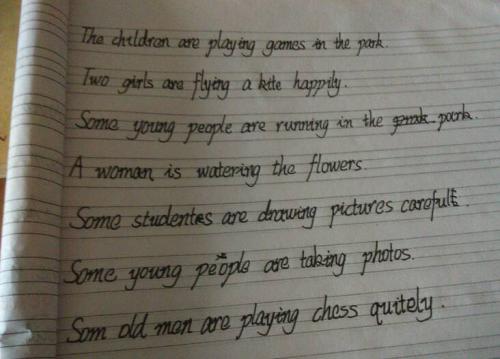 The children are playing games in the park.
Two girls are flying a kite happily.
Some young people are running in the park.
A woman is watering the flowers.
Some students are drawing pictures
Some young people are taking photos.
Som old men are playing chess quitely.